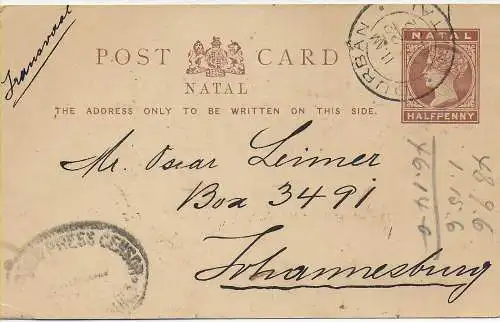 Transvaal
POST CARD
NATAL
THE ADDRESS ONLY TO BE WRITTEN ON THIS SIDE.
DURBAN
NATAL
HALFPENNY
Mr. Oscar Leimer
Box 3491
Johannesburg
PRESS CENSOR
48.9.6
1.15.6
46.14.0